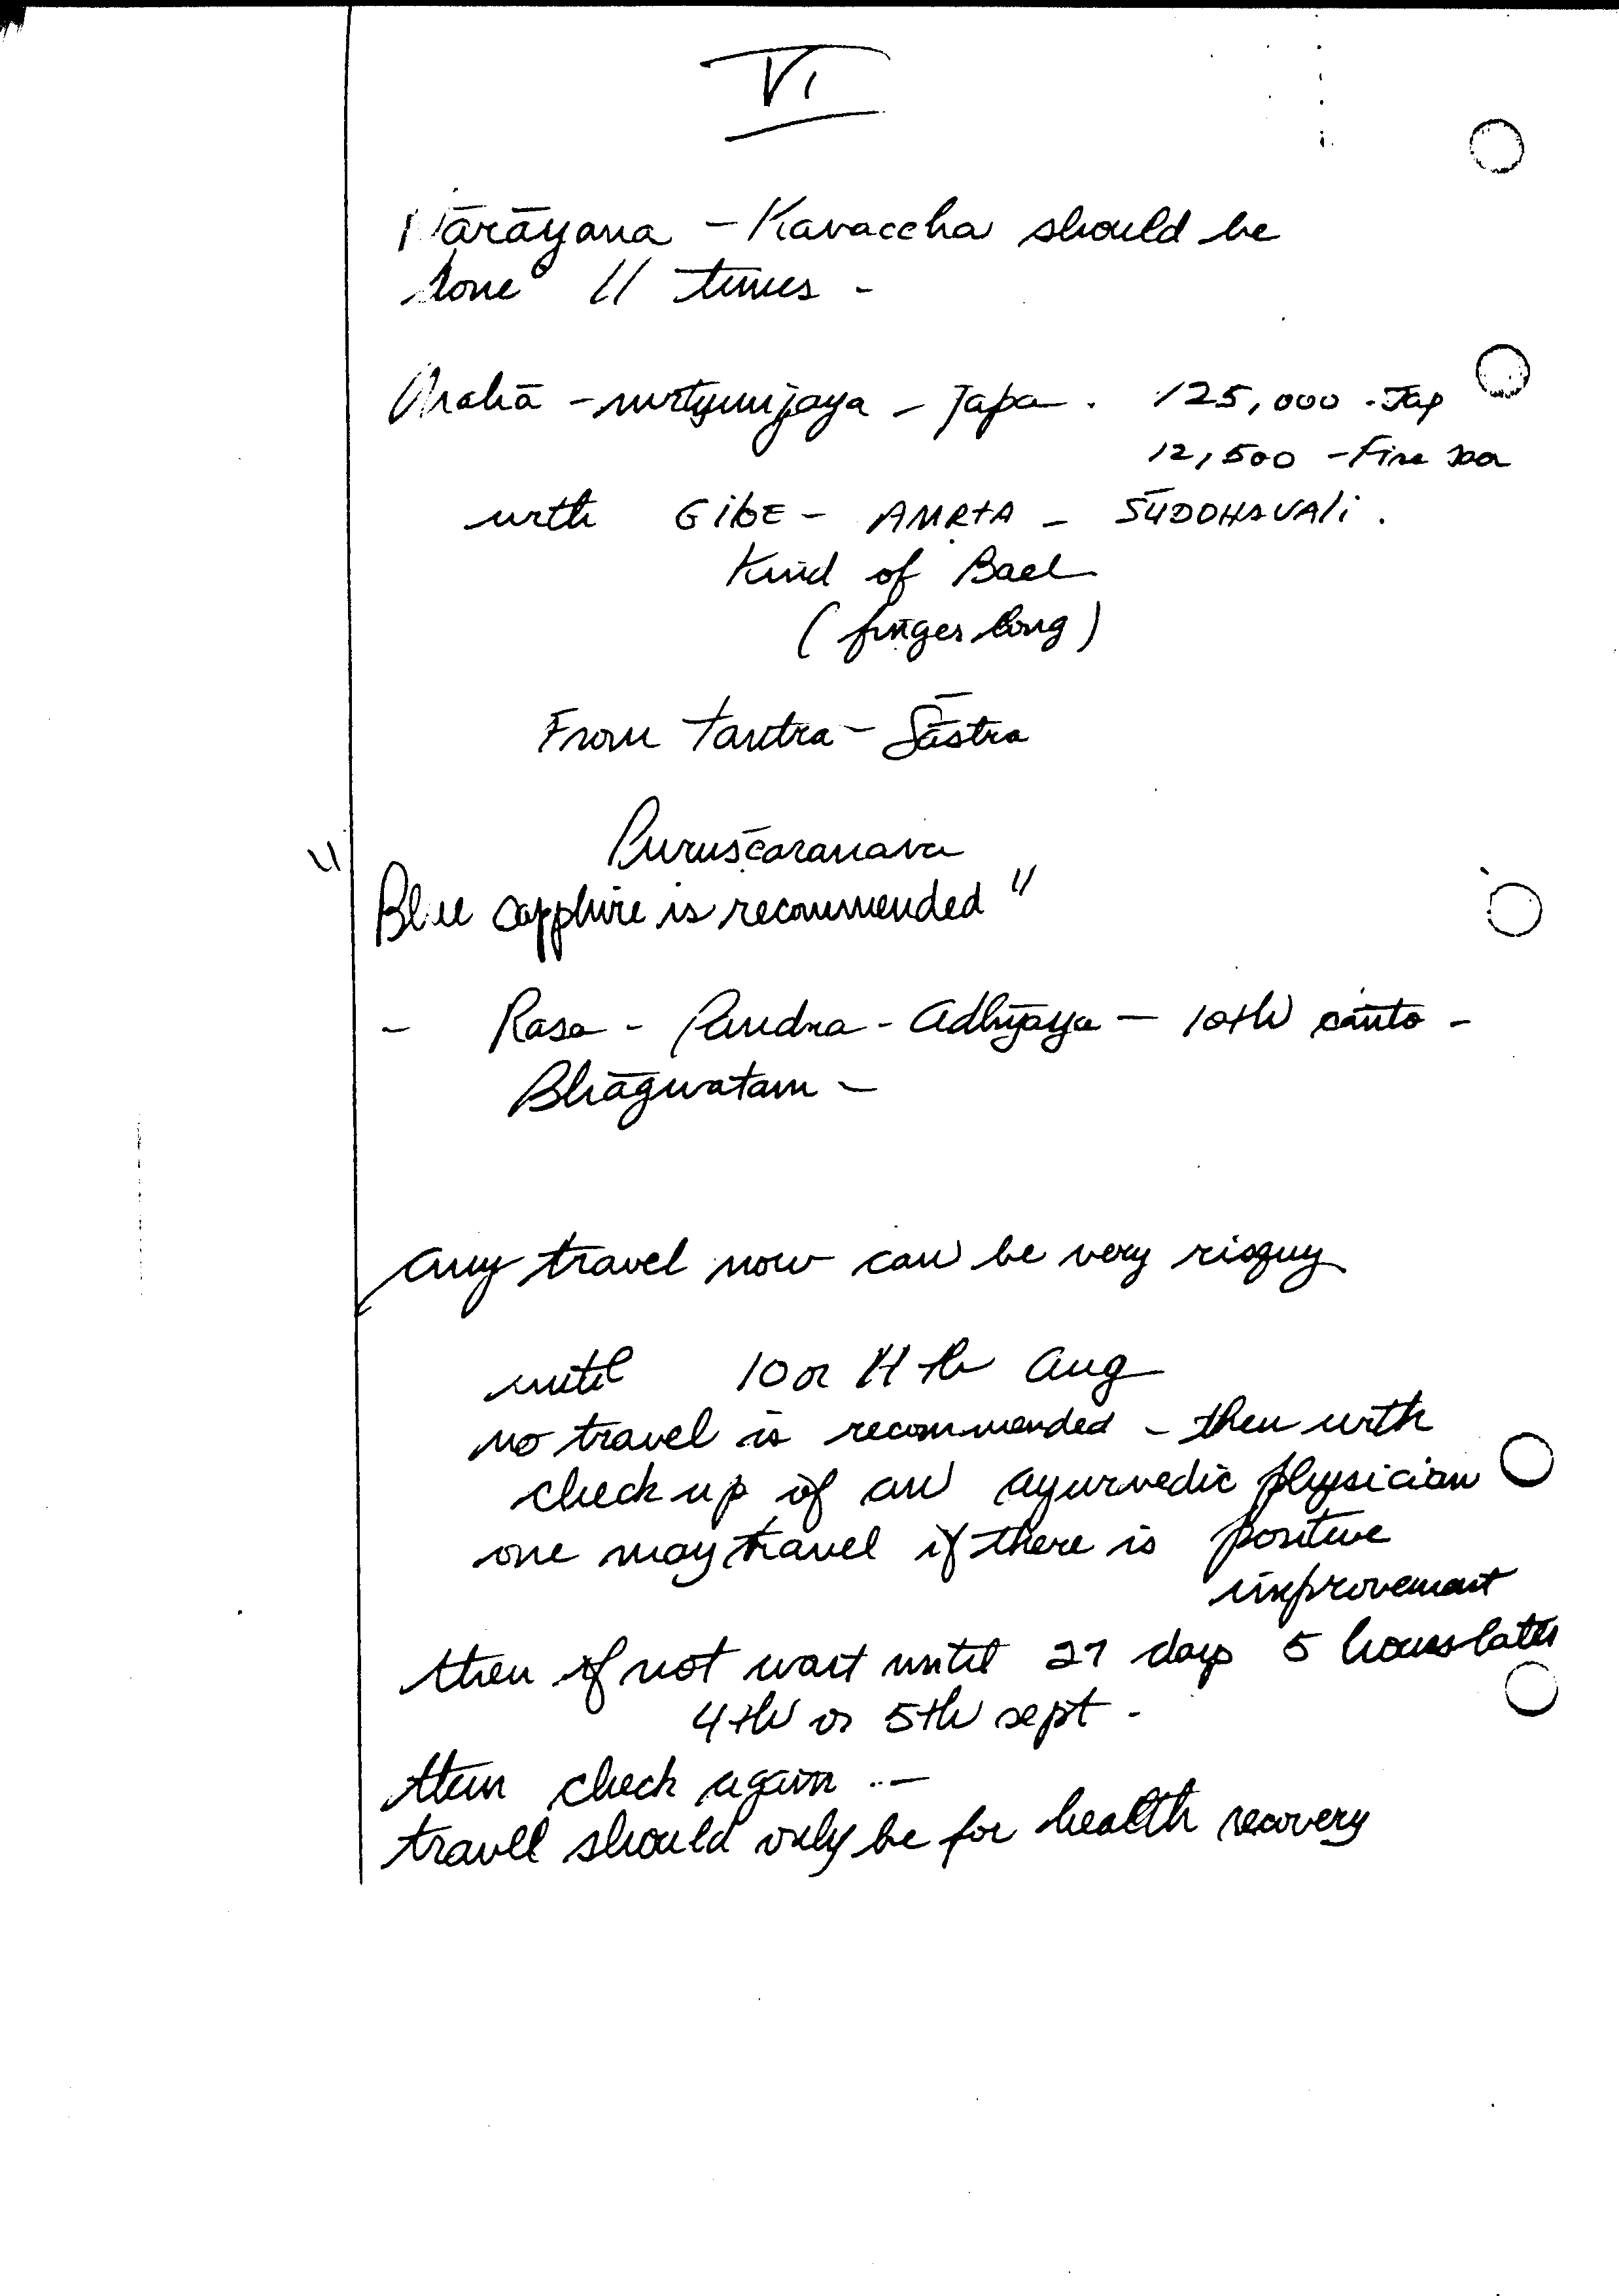 VI
Nārāyana - Kavaccha should be
done 11 times -
Mahā - mrtyumjaya - Japa . 125,000 - Jap
12,500 - Fire
with GiloE - AMRTA - SŪDDHAVAli .
Kind of Bael
(finger long)
From Tantra - Śāstra
Puruścaranava
"Blue sapphire is recommended"
- Rasa - Pandra - Adhyāya - 10th cānto -
Bhāgwatam -
Any travel now can be very risquy
until 10 or 11 th Aug
no travel is recommended - then with
check up of an ayurvedic physician
one may travel if there is positive
improvement
then if not wait until 27 days 5 hours later
4th or 5th sept -
then check again -
travell should only be for health recovery